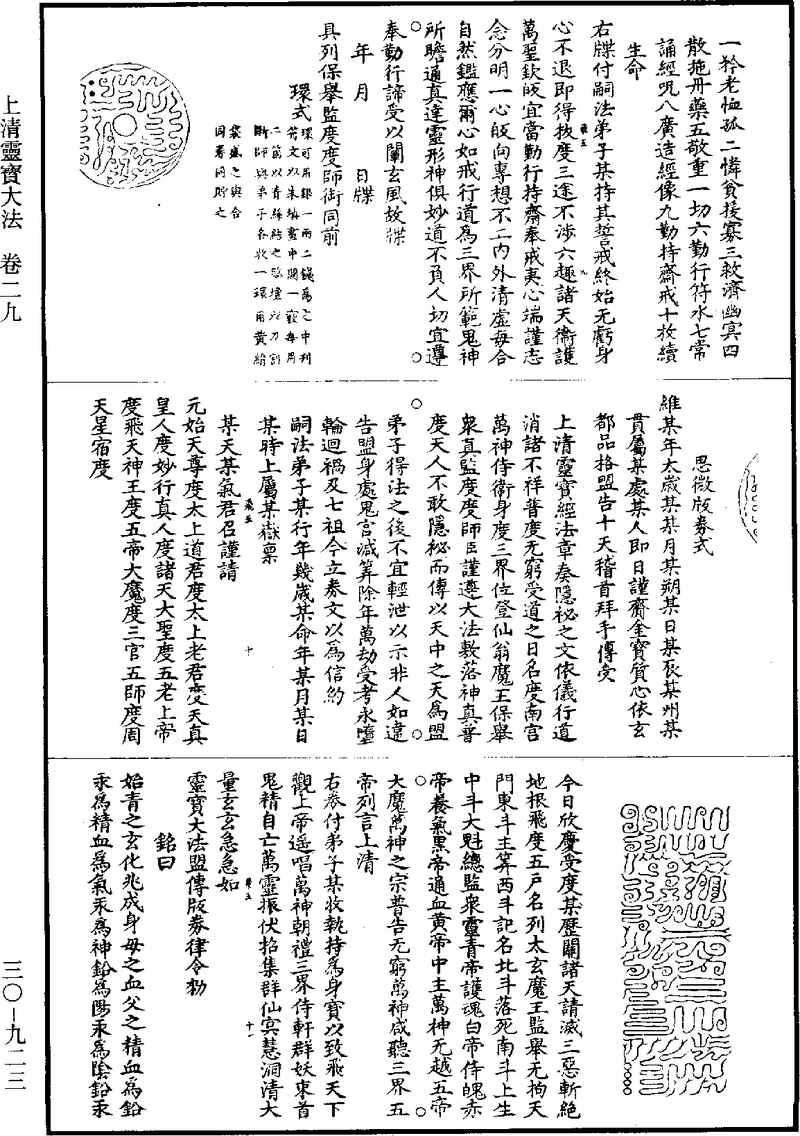 上清靈寶大法　卷二九
三〇－九二三
一矜老恤孤二憐貧援寡三救濟幽冥四
散施丹藥五敬重一切六勤行符水七常
誦經呪八廣造經像九勤持齋戒十救續
生命
右牒付嗣法弟子某持其誓戒終始无虧身
心不退即得拔度三途不涉六趣諸天衛護
萬聖欽皈宜當勤行持齋奉戒夷心端謹志
念分明一心皈向專想不二內外清虛每合
自然鑑應爾心如戒行道為三界所範鬼神
所瞻通真達靈形神俱妙道不負人切宜遵
奉勤行諦受以闡玄風故牒
年　月　　日牒
具列保舉監度度師銜同前
環式
環可用銀一兩二錢為之中刊
符文以朱填實中開一竅每用
二箇以青絲結之臨壇以刀割
斷師與弟子各收一環用黃絹
囊盛之與合
同券同貯之
思微版券式
維某年太歲某某月某朔某日某辰某州某
貫屬某處某人即日謹齎金寶質心依玄
都品格盟告十天稽首拜手傳受
上清靈寶經法章奏隱祕之文依儀行道
消諸不祥普度无窮受道之日名度南宮
萬神侍衛身度三界位登仙翁魔王保舉
衆真監度度師臣謹遵大法敷落神真普
度天人不敢隱祕而傳以天中之天為盟
弟子得法之後不宜輕泄以示非人如違
告盟身處鬼官減筭除年萬劫受考永墮
輪迴禍及七祖今立券文以為信約
嗣法弟子某行年幾歲某命年某月某日
某時上屬某嶽稟
某天某氣君召謹請
元始天尊度太上道君度太上老君度天真
皇人度妙行真人度諸天大聖度五老上帝
度飛天神王度五帝大魔度三官五師度周
天星宿度
今日欣慶受度某歷關諸天請滅三惡斬絕
地根飛度五戶名列太玄魔王監舉无拘天
門東斗主筭西斗記名北斗落死南斗上生
中斗大魁總監衆靈青帝護魂白帝侍魄赤
帝養氣黑帝通血黃帝中主萬神无越五帝
大魔萬神之宗普告无窮萬神咸聽三界五
帝列言上清
右券付弟子某收執持為身寶以致飛天下
觀上帝遥唱萬神朝禮三界侍軒群妖束首
鬼精自亡萬靈振伏招集群仙㝠慧洞清大
量玄玄急急如
靈寶大法盟傳版券律令勑
銘曰
始青之玄化兆成身母之血父之精血為鉛
汞為精血為氣汞為神鉛為陽汞為陰鉛汞